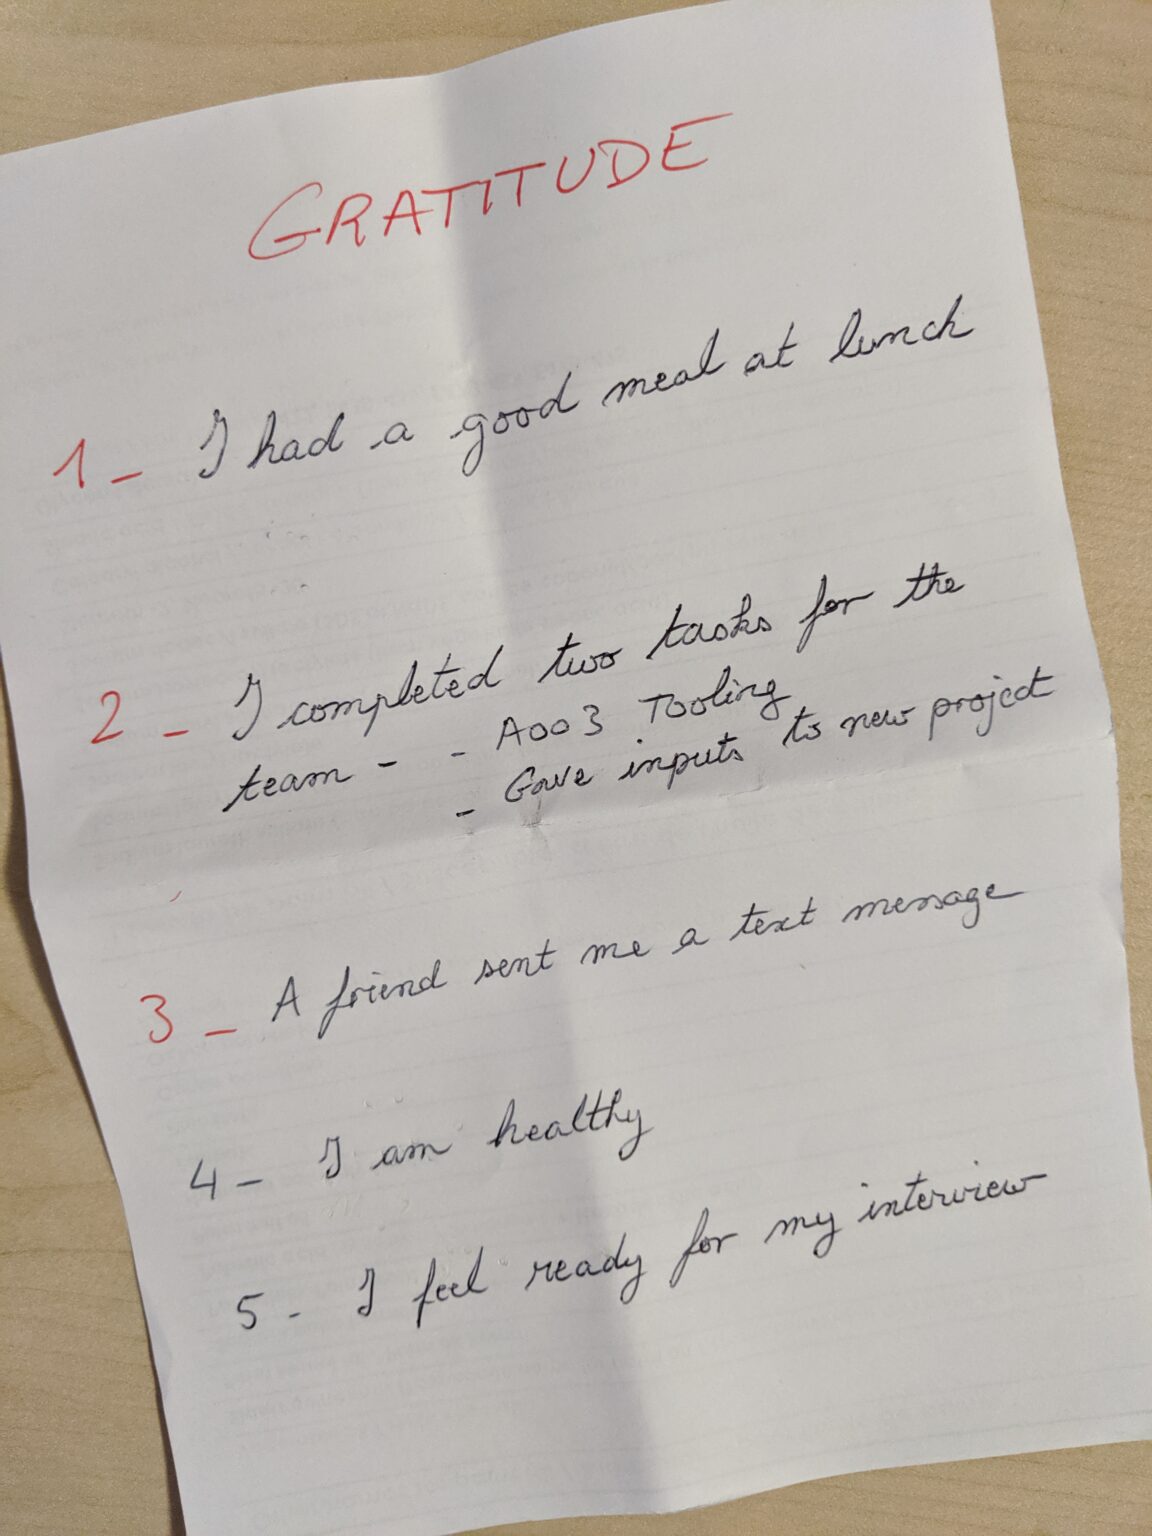 GRATITUDE
1 - I had a good meal at lunch
2 - I completed two tasks for the
team - - A003 Tooling
- Gave inputs to new project
3 - A friend sent me a text message
4 - I am healthy
5 - I feel ready for my interview